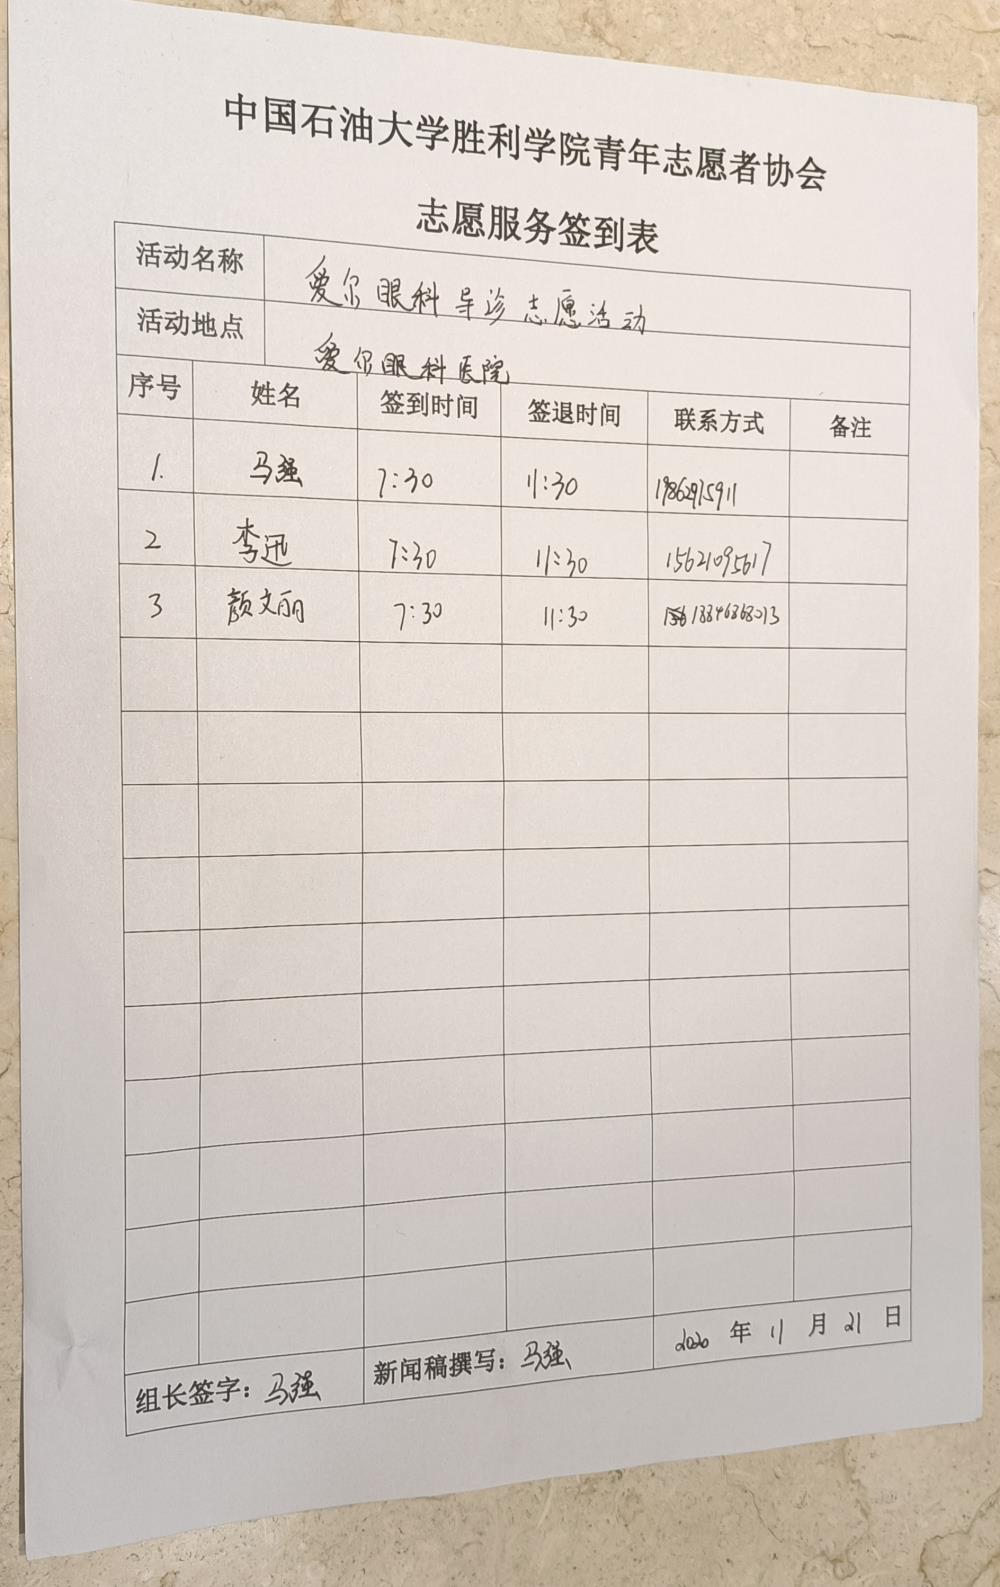 中国石油大学胜利学院青年志愿者协会
志愿服务签到表
活动名称 爱尔眼科导诊志愿活动
活动地点 爱尔眼科医院
序号 姓名 签到时间 签退时间 联系方式 备注
1. 马强 7:30 11:30
2 李迅 7:30 11:30 15621095617
3 颜文丽 7:30 11:30
组长签字：马强 新闻稿撰写：马强 2020 年 11 月 21 日